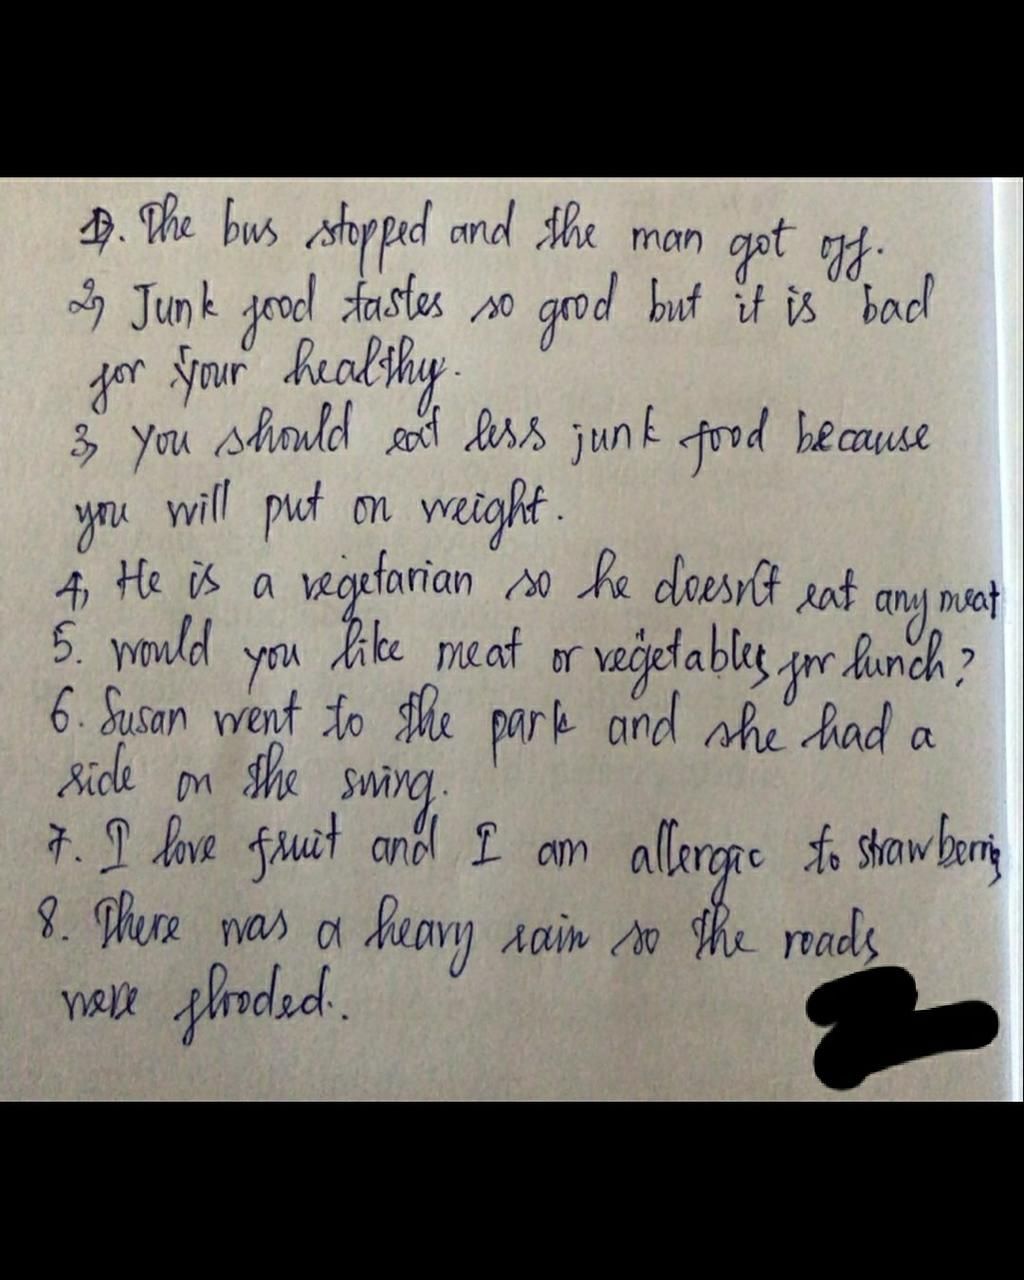 1. The bus stopped and the man got off.
2, Junk food tastes so good but it is bad
for your healthy.
3, you should eat less junk food because
you will put on weight.
4, He is a vegetarian so he doesn't eat any meat
5. would you like meat or vegetables for lunch?
6. Susan went to the park and she had a
ride on the swing.
7. I love fruit and I am allergic to strawberries
8. There was a heavy rain so the roads
were flooded.